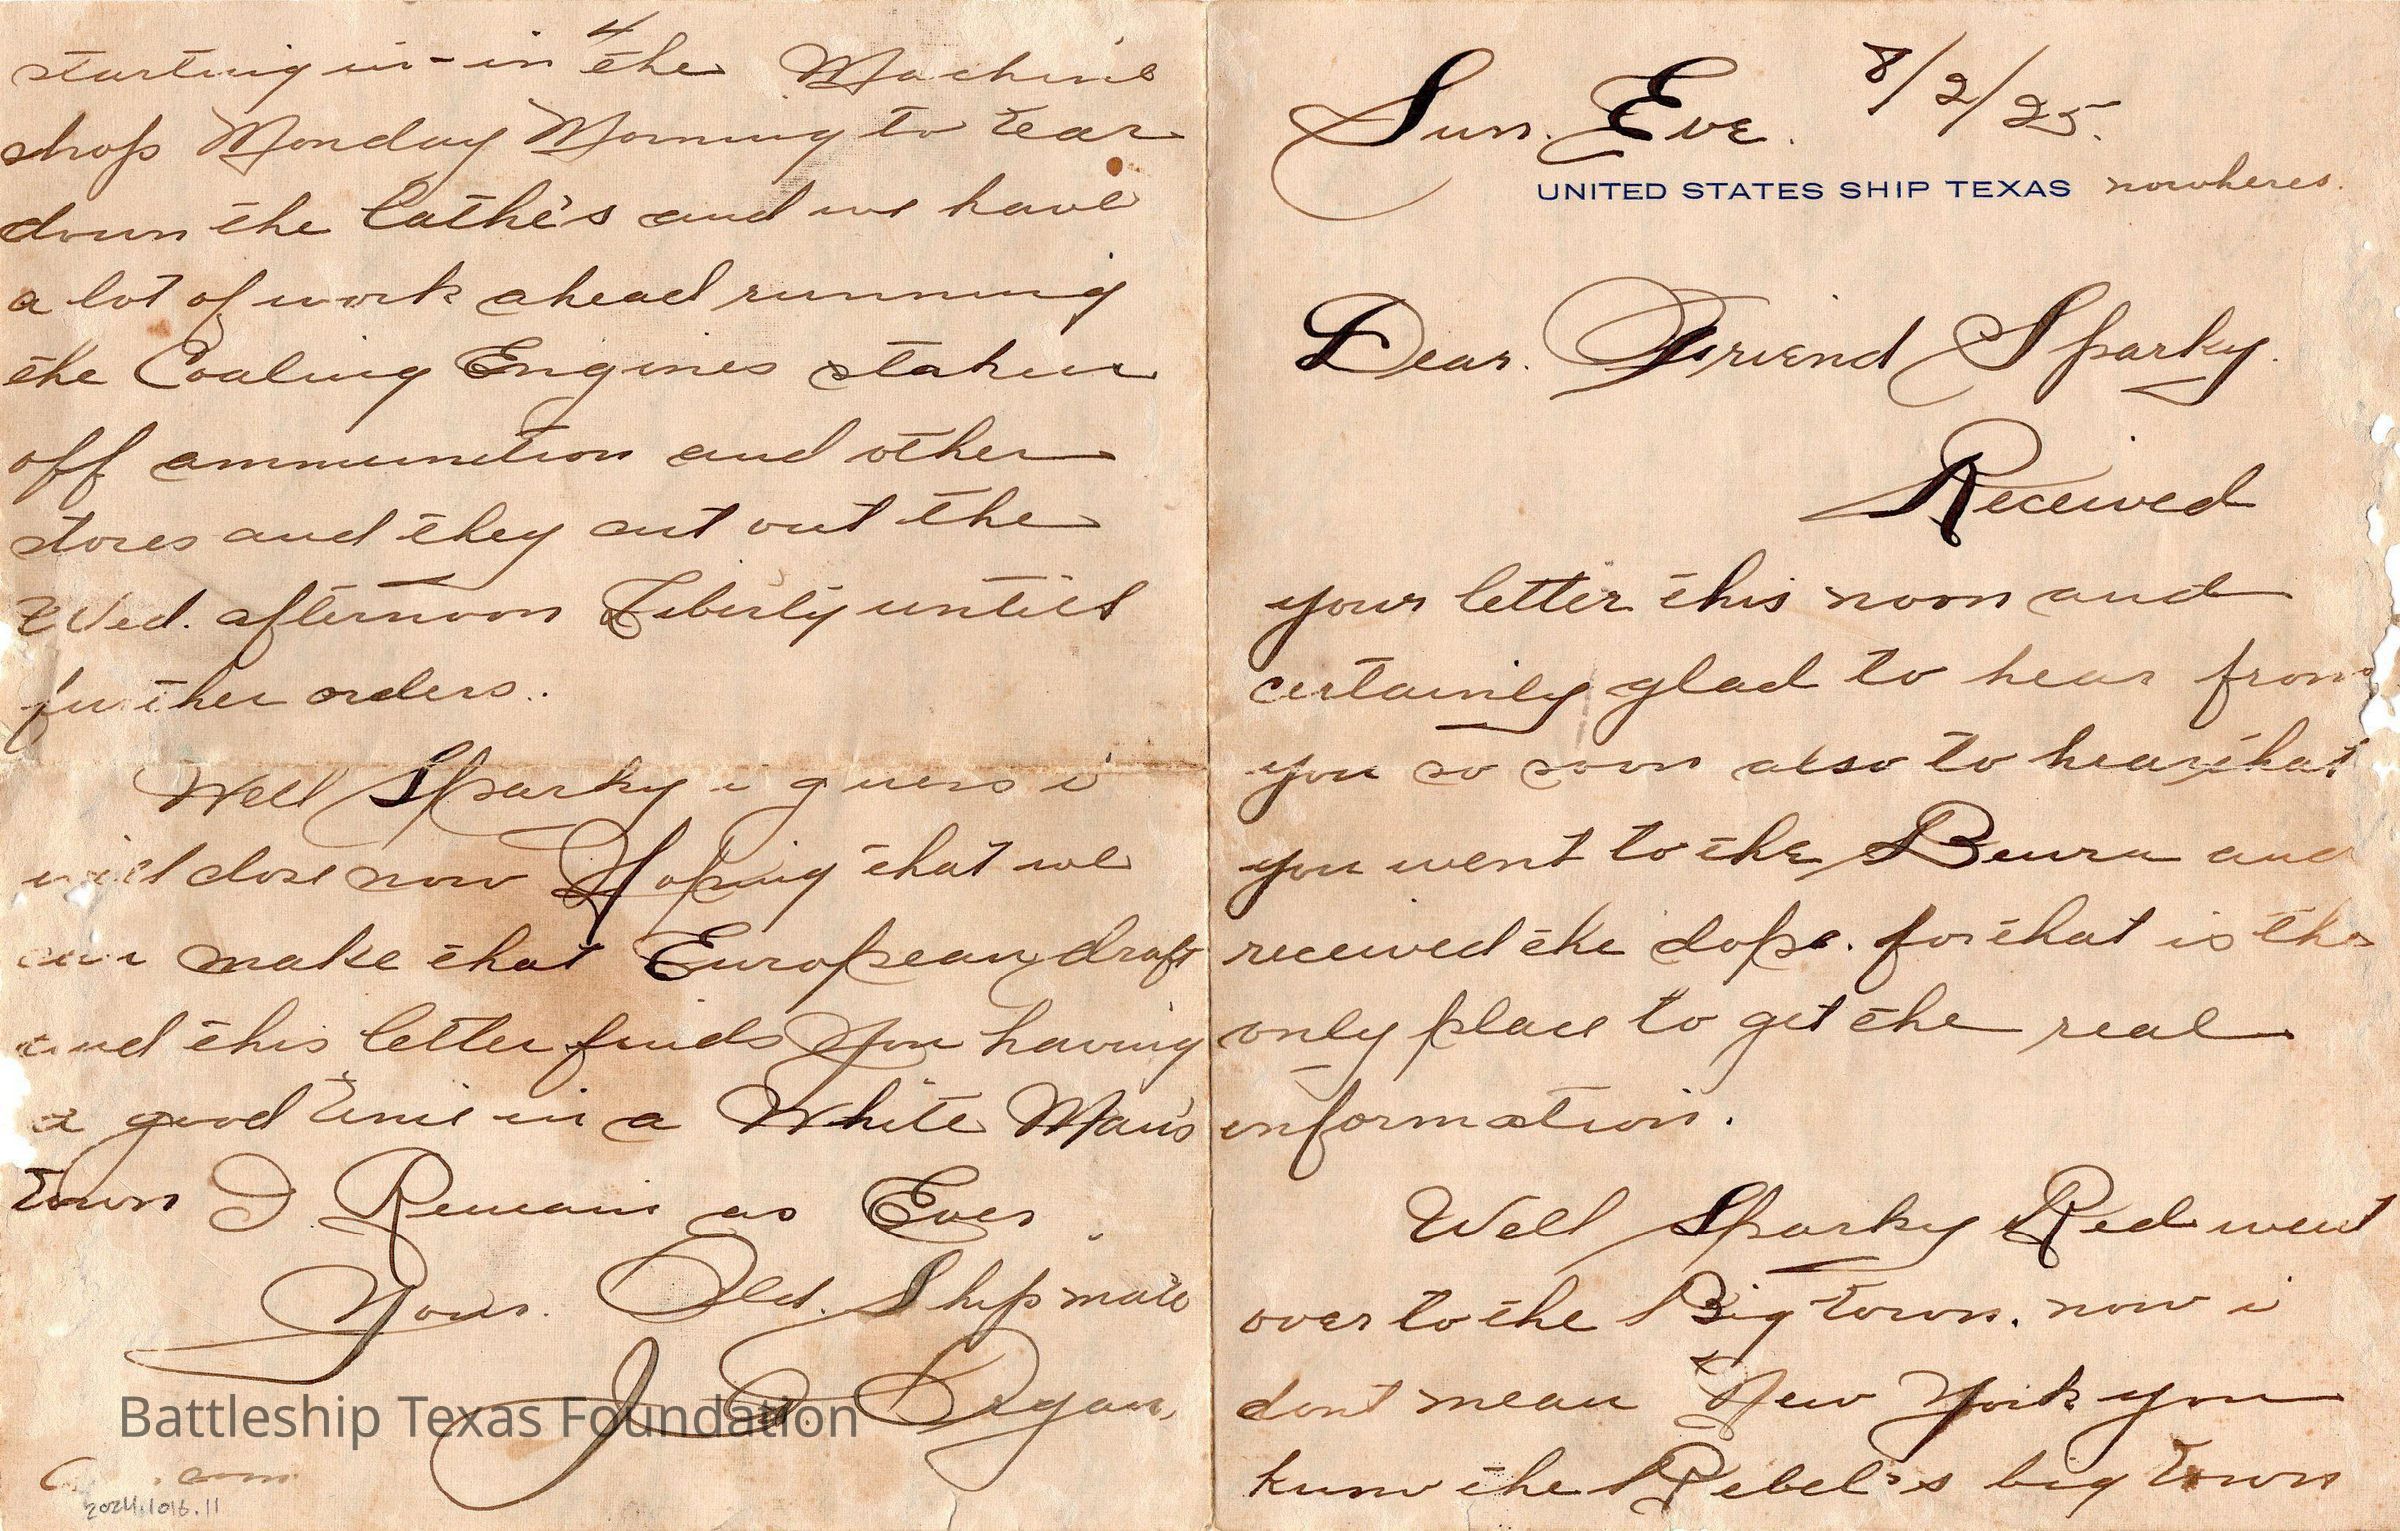 Sun. Eve. 8/2/25.
UNITED STATES SHIP TEXAS nowheres.
Dear. Friend Sparky.
Received
your letter this noon and
certainly glad to hear from
you so soon also to hear that
you went to the Beuru and
received the dope. for that is the
only place to get the real
information.
Well Sparky Red went
over to the Big town. now i
dont mean New York you
know the Rebel's big town
4
starting in - in the Machine
shop Monday Morning to tear
down the lathe's and we have
a lot of work ahead running
the Coaling Engines taken
off ammunition and other
stores and they cut out the
Wed. afternoon Liberty untill
further orders.
Well Sparky i guess i
will close now Hoping that we
can make that European draft
and this letter finds you having
a good time in a White Man's
town I Remain as Ever
Your. Old. Shipmate
J. Ryan.
Battleship Texas Foundation
2024.1016.11